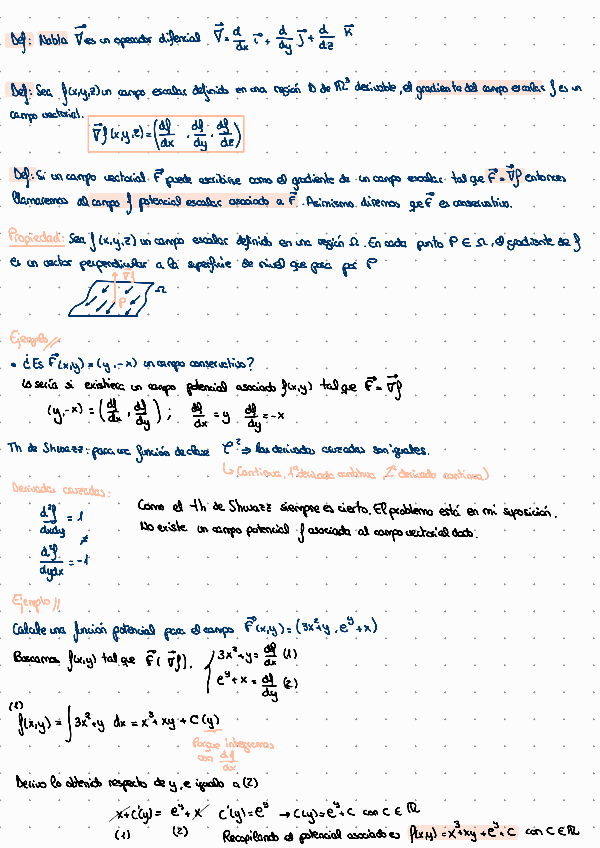 Def: Nabla ∇⃗ es un operador diferencial ∇⃗ = d/dx i⃗ + d/dy j⃗ + d/dz k⃗
Def: Sea f(x,y,z) un campo escalar definido en una región D de ℝ³ derivable, el gradiente del campo escalar f es un
campo vectorial.
∇⃗f(x,y,z) = (df/dx, df/dy, df/dz)
Def: Si un campo vectorial F⃗ puede escribirse como el gradiente de un campo escalar tal que F⃗ = ∇⃗f entonces
llamaremos al campo f potencial escalar asociado a F⃗. Asimismo diremos que F⃗ es conservativo.
Propiedad: Sea f(x,y,z) un campo escalar definido en una región Ω. En cada punto P ∈ Ω, el gradiente de f
es un vector perpendicular a la superficie de nivel que pasa por P
∇⃗f
Ω
P
Ejemplo//
• ¿Es F⃗(x,y) = (y,-x) un campo conservativo?
Lo sería si existiera un campo potencial asociado f(x,y) tal que F⃗ = ∇⃗f
(y,-x) = (df/dx, df/dy) ; df/dx = y df/dy = -x
Th de Shwazz: para una función de clase C² ⇒ las derivadas cruzadas son iguales.
↳ (continua, 1ª derivada continua 2ª derivada continua)
Derivadas cruzadas:
d²f/dxdy = 1
≠
d²f/dydx = -1
Como el th de Shwazz siempre es cierto. El problema está en mi suposición.
No existe un campo potencial f asociada al campo vectorial dado.
Ejemplo//
Calcule una función potencial para el campo F⃗(x,y) = (3x²+y, e^y+x)
Buscamos f(x,y) tal que F⃗( ∇⃗f).
3x²+y = df/dx (1)
e^y+x = df/dy (2)
(1)
f(x,y) = ∫3x²+y dx = x³+xy+C(y)
Porque integramos
con df/dx
Derivo lo obtenido respecto de y, e igualo a (2)
x+C'(y) = e^y+x C'(y) = e^y → C(y) = e^y+C con C ∈ ℝ
(1) (2) Recopilando el potencial asociado es f(x,y) = x³+xy+e^y+C con C ∈ ℝ